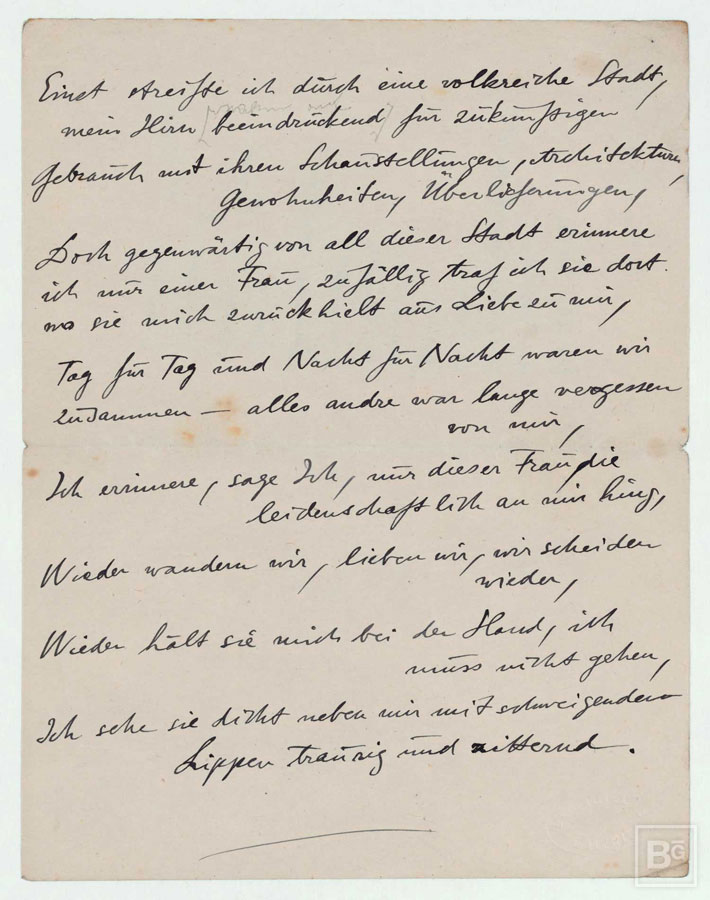 Einst streifte ich durch eine volkreiche Stadt,
mein Hirn beeindruckend für zukünftigen
Gebrauch mit ihren Schaustellungen, Architekturen,
Gewohnheiten, Überlieferungen,
Doch gegenwärtig von all dieser Stadt erinnere
ich nur einer Frau, zufällig traf ich sie dort.
wo sie mich zurückhielt aus Liebe zu mir,
Tag für Tag und Nacht für Nacht waren wir
zusammen — alles andre war lange vergessen
von mir,
Ich erinnere, sage Ich, nur dieser Frau, die
leidenschaftlich an mir hing,
Wieder wandern wir, lieben wir, wir scheiden
wieder,
Wieder hält sie mich bei der Hand, ich
muss nicht gehen,
Ich sehe sie dicht neben mir mit schweigenden
Lippen traurig und zitternd.
BG